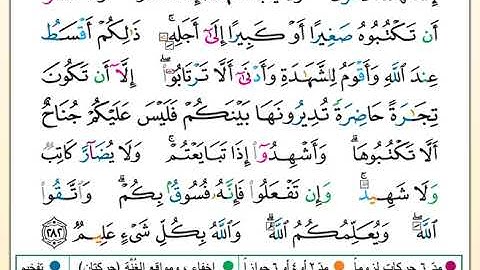 أَن تَكْتُبُوهُ صَغِيرًا أَوْ كَبِيرًا إِلَىٰٓ أَجَلِهِۦۚ ذَٰلِكُمْ أَقْسَطُ
عِندَ ٱللَّهِ وَأَقْوَمُ لِلشَّهَٰدَةِ وَأَدْنَىٰٓ أَلَّا تَرْتَابُوٓا۟ إِلَّآ أَن تَكُونَ
تِجَٰرَةً حَاضِرَةً تُدِيرُونَهَا بَيْنَكُمْ فَلَيْسَ عَلَيْكُمْ جُنَاحٌ
أَلَّا تَكْتُبُوهَاۗ وَأَشْهِدُوٓا۟ إِذَا تَبَايَعْتُمْۚ وَلَا يُضَآرَّ كَاتِبٌ
وَلَا شَهِيدٌۚ وَإِن تَفْعَلُوا۟ فَإِنَّهُۥ فُسُوقٌۢ بِكُمْۗ وَٱتَّقُوا۟
ٱللَّهَۖ وَيُعَلِّمُكُمُ ٱللَّهُۗ وَٱللَّهُ بِكُلِّ شَىْءٍ عَلِيمٌ ٢٨٢
مدّ ٦ حركات لزوماً مدّ٢ أو٤ أو ٦ جوازاً إخفاء، ومواقع الغُنَّة (حركتان) تفخيم